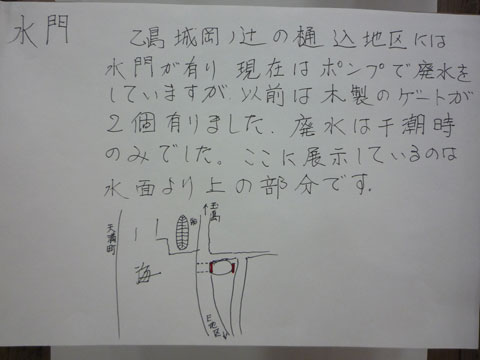 水門
乙島城岡ノ辻の樋込地区には
水門が有り 現在はポンプで廃水を
していますが、以前は木製のゲートが
2個有りました。廃水は干潮時
のみでした。ここに展示しているのは
水面より上の部分です。
玉島
天満町
海